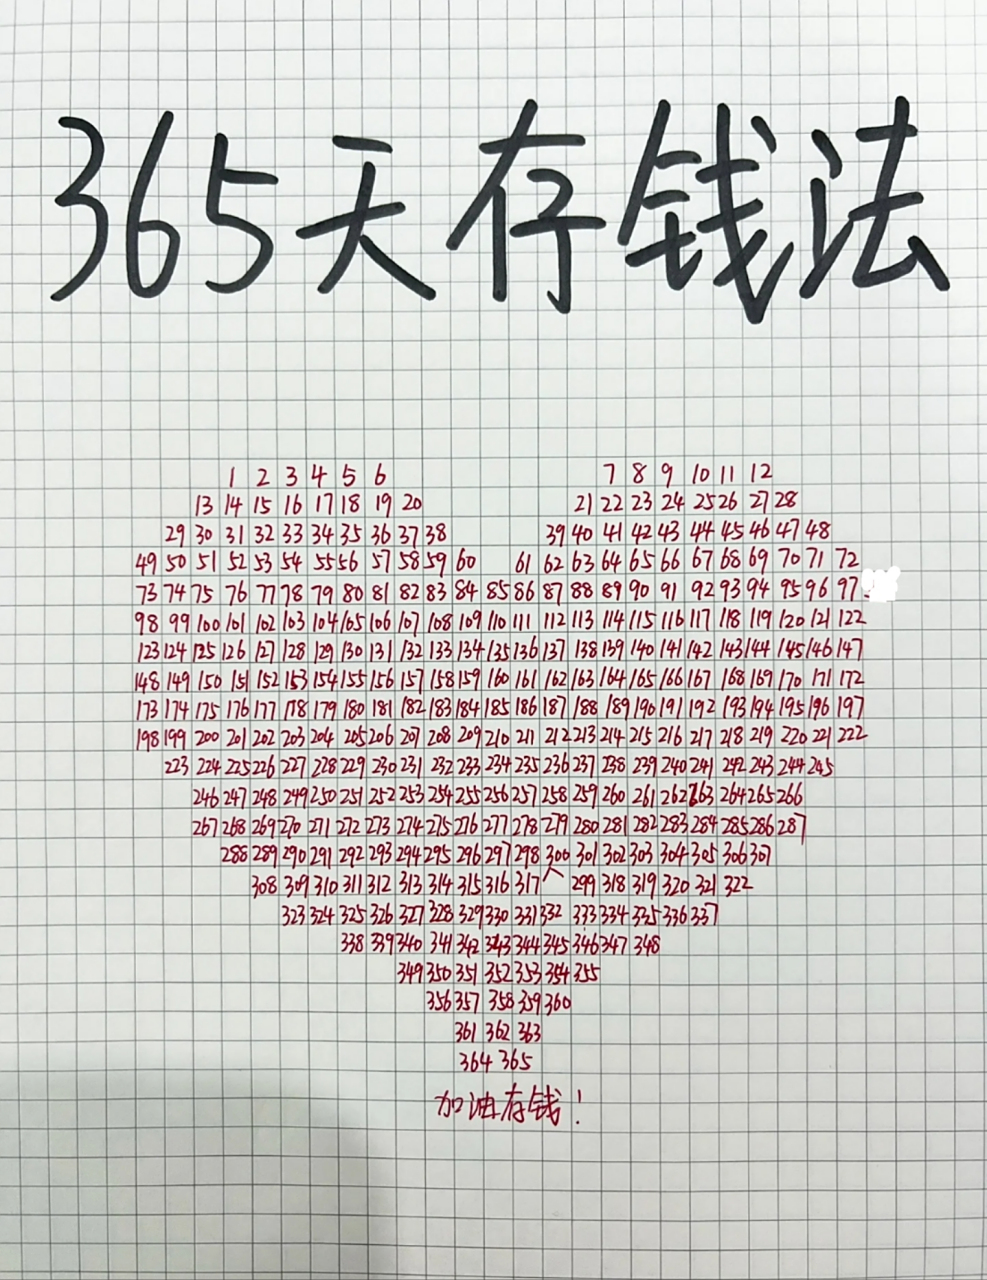 365天存钱法
1 2 3 4 5 6 7 8 9 10 11 12
13 14 15 16 17 18 19 20 21 22 23 24 25 26 27 28
29 30 31 32 33 34 35 36 37 38 39 40 41 42 43 44 45 46 47 48
49 50 51 52 53 54 55 56 57 58 59 60 61 62 63 64 65 66 67 68 69 70 71 72
73 74 75 76 77 78 79 80 81 82 83 84 85 86 87 88 89 90 91 92 93 94 95 96 97
98 99 100 101 102 103 104 105 106 107 108 109 110 111 112 113 114 115 116 117 118 119 120 121 122
123 124 125 126 127 128 129 130 131 132 133 134 135 136 137 138 139 140 141 142 143 144 145 146 147
148 149 150 151 152 153 154 155 156 157 158 159 160 161 162 163 164 165 166 167 168 169 170 171 172
173 174 175 176 177 178 179 180 181 182 183 184 185 186 187 188 189 190 191 192 193 194 195 196 197
198 199 200 201 202 203 204 205 206 207 208 209 210 211 212 213 214 215 216 217 218 219 220 221 222
223 224 225 226 227 228 229 230 231 232 233 234 235 236 237 238 239 240 241 242 243 244 245
246 247 248 249 250 251 252 253 254 255 256 257 258 259 260 261 262 263 264 265 266
267 268 269 270 271 272 273 274 275 276 277 278 279 280 281 282 283 284 285 286 287
288 289 290 291 292 293 294 295 296 297 298 300 301 302 303 304 305 306 307
308 309 310 311 312 313 314 315 316 317 299 318 319 320 321 322
323 324 325 326 327 328 329 330 331 332 333 334 335 336 337
338 339 340 341 342 343 344 345 346 347 348
349 350 351 352 353 354 355
356 357 358 359 360
361 362 363
364 365
加油存钱!